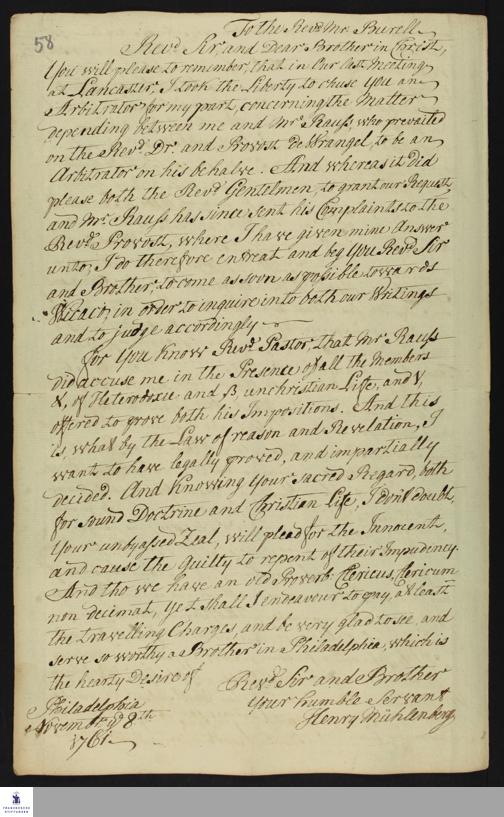 58
To the Revd. Mr. Burell
Revd Sir and Dear Brother in Christ,
You will please to remember, that in Our last Meeting
at Lancaster, I took the Liberty to chuse You an
Arbitrator for my part, concerning the Matter
depending between me and Mr. Rauss, who prevailed
on the Revd. Dr. and Provost de Wrangel, to be an
Arbitrator on his behalve. And whereas it did
please both the Revd Gentelmen, to grant our Request,
and Mr. Rauss has since sent his Complaints to the
Revd: Provost, where I have given mine Answer
unto; I do therefore entreat and beg You Revd. Sir
and Brother, to come as soon as possible towards
Wicaco, in order to inquire into both our Writings
and to judge accordingly
for You Know Revd. Pastor, that Mr Rauss
did accuse me in the Presence of all the Members
of Heterodoxie and β, unchristian Life, and
offered to prove both his Impositions. And this
is, what by the Law of reason and Revelation, I
want to have legally proved, and impartially
decided. And Knowing Your sacred Regard, both
for sound Doctrine and Christian Life, I don't doubt,
Your unbyassed Zeal, will plead for the Innocent,
and cause the guilty to repent of their Impudency.
And tho we have an old Proverb: Clericus, Clericum
non decimat, yet shall I endeavour to pay, at least
the travelling Charges, and be very glad to see, and
serve so worthy a Brother in Philadelphia, which is
the hearty Desire of
Revd. Sir and Brother
Your humble Servant
Henry Mühlenberg
Philadelphia
Novembr. ye 8th
1761.
FRANCKESCHE
STIFTUNGEN